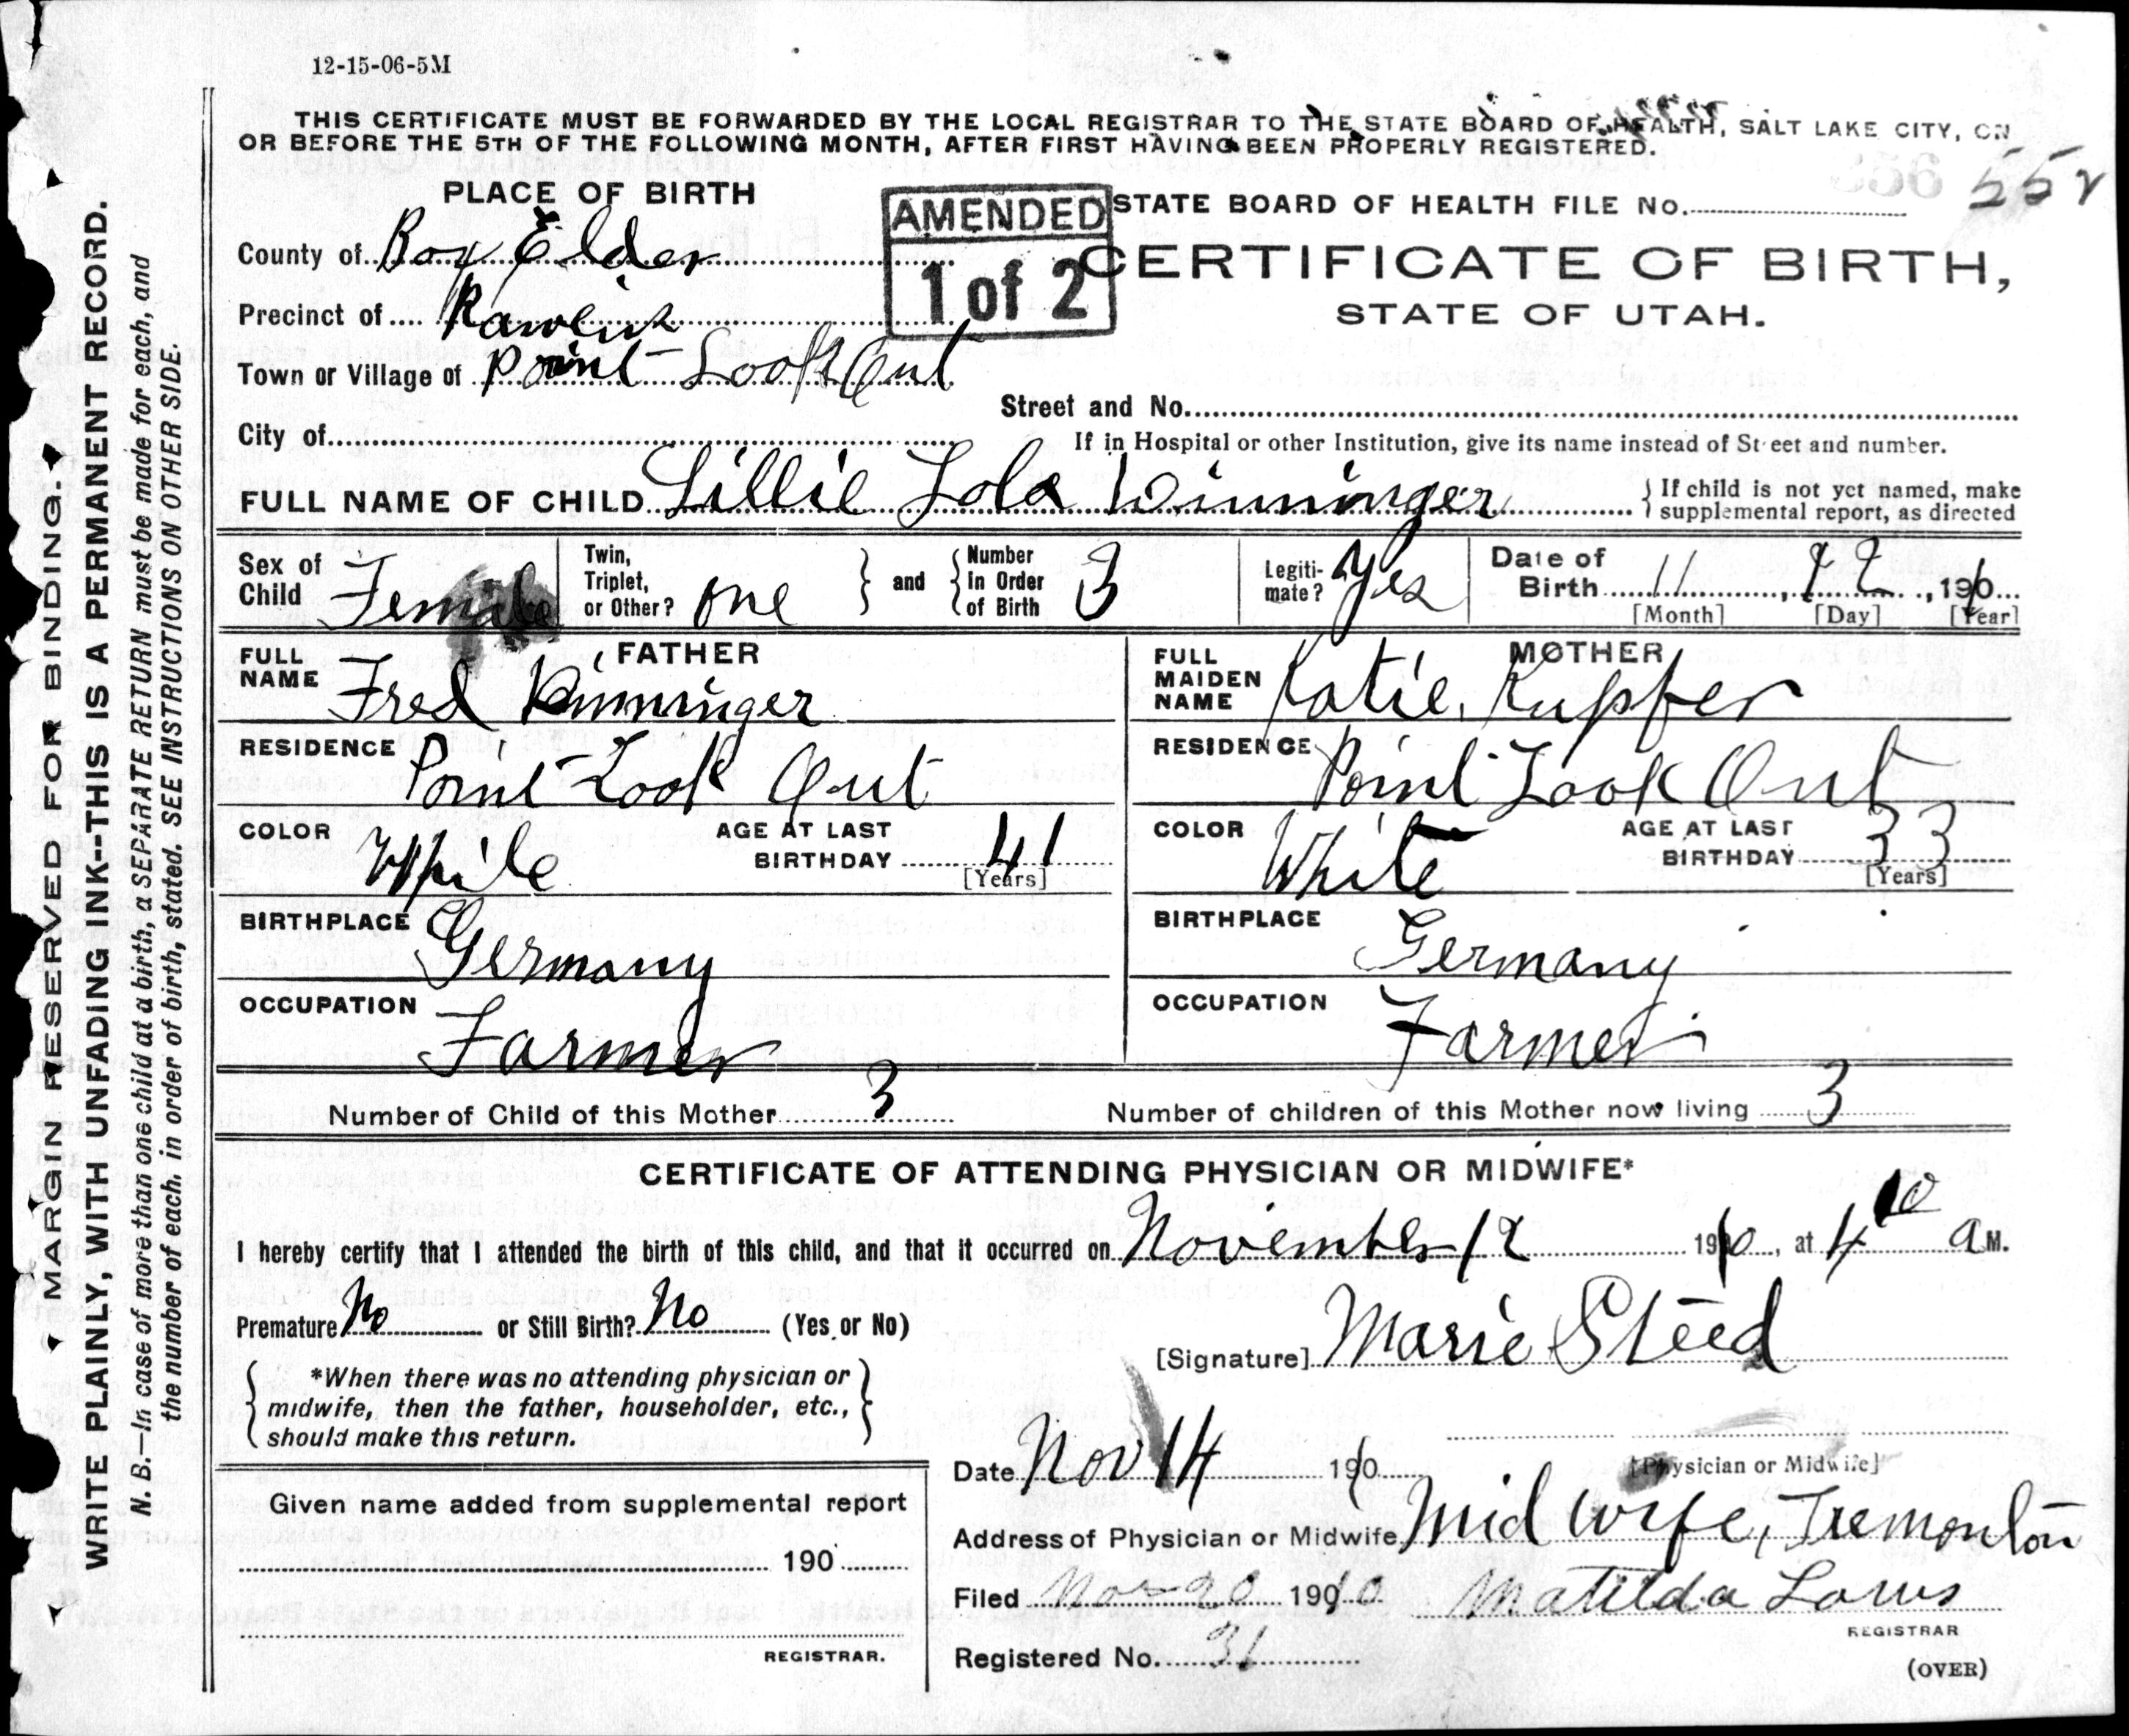 12-15-06-5M
THIS CERTIFICATE MUST BE FORWARDED BY THE LOCAL REGISTRAR TO THE STATE BOARD OF HEALTH, SALT LAKE CITY, ON
OR BEFORE THE 5TH OF THE FOLLOWING MONTH, AFTER FIRST HAVING BEEN PROPERLY REGISTERED.
PLACE OF BIRTH
STATE BOARD OF HEALTH FILE No.
356
AMENDED
1 of 2
County of Box Elder
CERTIFICATE OF BIRTH,
STATE OF UTAH.
Precinct of Rawlins
Town or Village of Point Look Out
Street and No.
City of
If in Hospital or other Institution, give its name instead of Street and number.
FULL NAME OF CHILD Lillie Lola Winninger
If child is not yet named, make
supplemental report, as directed
Sex of Child Female
Twin, Triplet, or Other? one
and
Number In Order of Birth 3
Legitimate? Yes
Date of Birth 11, 12, 1910
[Month] [Day] [Year]
FATHER
FULL NAME Fred Winninger
RESIDENCE Point Look Out
COLOR White
AGE AT LAST BIRTHDAY 41
[Years]
BIRTHPLACE Germany
OCCUPATION Farmer
MOTHER
FULL MAIDEN NAME Katie Kupfer
RESIDENCE Point Look Out
COLOR White
AGE AT LAST BIRTHDAY 33
[Years]
BIRTHPLACE Germany
OCCUPATION Farmer
Number of Child of this Mother 3
Number of children of this Mother now living 3
CERTIFICATE OF ATTENDING PHYSICIAN OR MIDWIFE*
I hereby certify that I attended the birth of this child, and that it occurred on November 12 1910, at 4 10 a M.
Premature No or Still Birth? No (Yes or No)
[Signature] Marie Steed
*When there was no attending physician or
midwife, then the father, householder, etc.,
should make this return.
Date Nov 14 190
[Physician or Midwife]
Given name added from supplemental report
190
REGISTRAR.
Address of Physician or Midwife Mid wife, Tremonton
Filed Nov 20 1910 Matilda
REGISTRAR
Registered No. 31
(OVER)
MARGIN RESERVED FOR BINDING.
WRITE PLAINLY, WITH UNFADING INK--THIS IS A PERMANENT RECORD.
N. B.—In case of more than one child at a birth, a SEPARATE RETURN must be made for each, and
the number of each, in order of birth, stated. SEE INSTRUCTIONS ON OTHER SIDE.